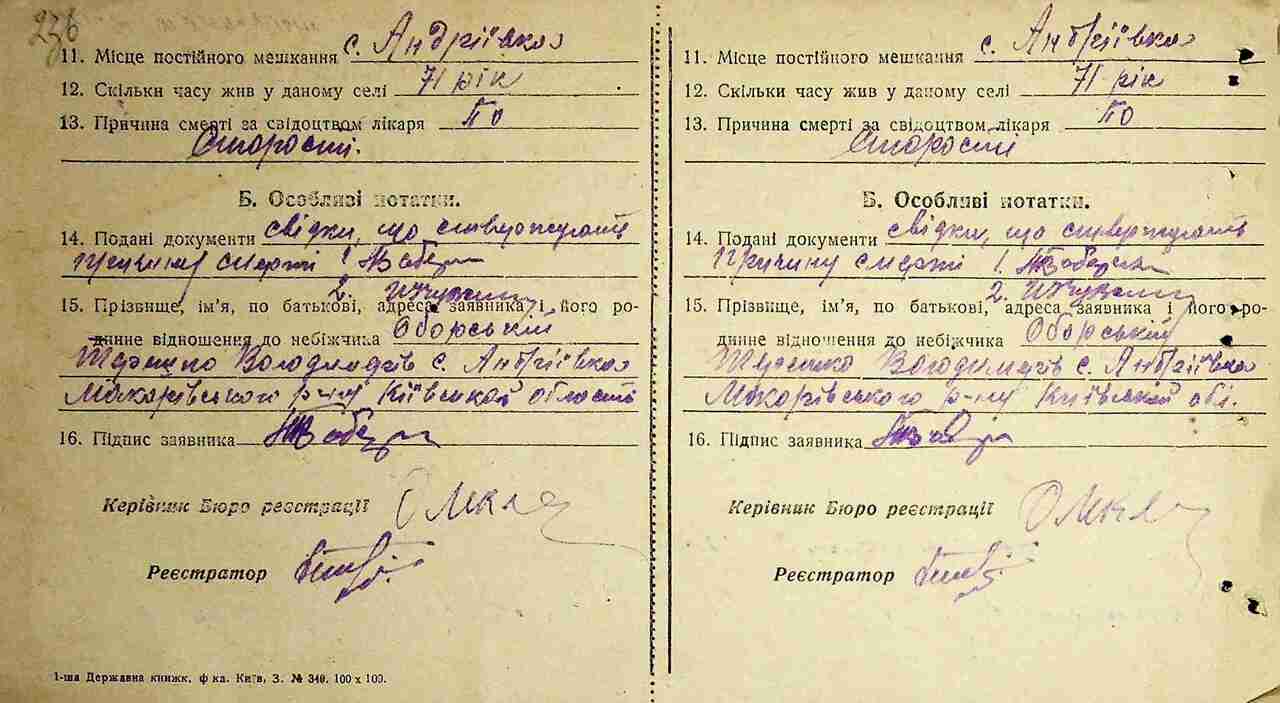 236
11. Місце постійного мешкання с. Андріївка
12. Скільки часу жив у даному селі 71 рік
13. Причина смерті за свідоцтвом лікаря По
Старості.
Б. Особливі нотатки.
14. Подані документи свідки, що ствержують
причину смерті 1.
2.
15. Прізвище, ім'я, по батькові, адреса заявника і його ро-
динне відношення до небіжчика Оборський
с. Андріївка
Макарівського р-ну Київської область
16. Підпис заявника
Керівник Бюро реєстрації
Реєстратор
1-ша Державна книжк. ф-ка. Київ, З. № 340. 100 х 100.
11. Місце постійного мешкання с. Андріївка
12. Скільки часу жив у даному селі 71 рік
13. Причина смерті за свідоцтвом лікаря По
Старості
Б. Особливі нотатки.
14. Подані документи свідки, що ствержують
причину смерті 1.
2.
15. Прізвище, ім'я, по батькові, адреса заявника і його ро-
динне відношення до небіжчика Оборський
с. Андріївка
Макарівського р-ну Київській обл.
16. Підпис заявника
Керівник Бюро реєстрації
Реєстратор